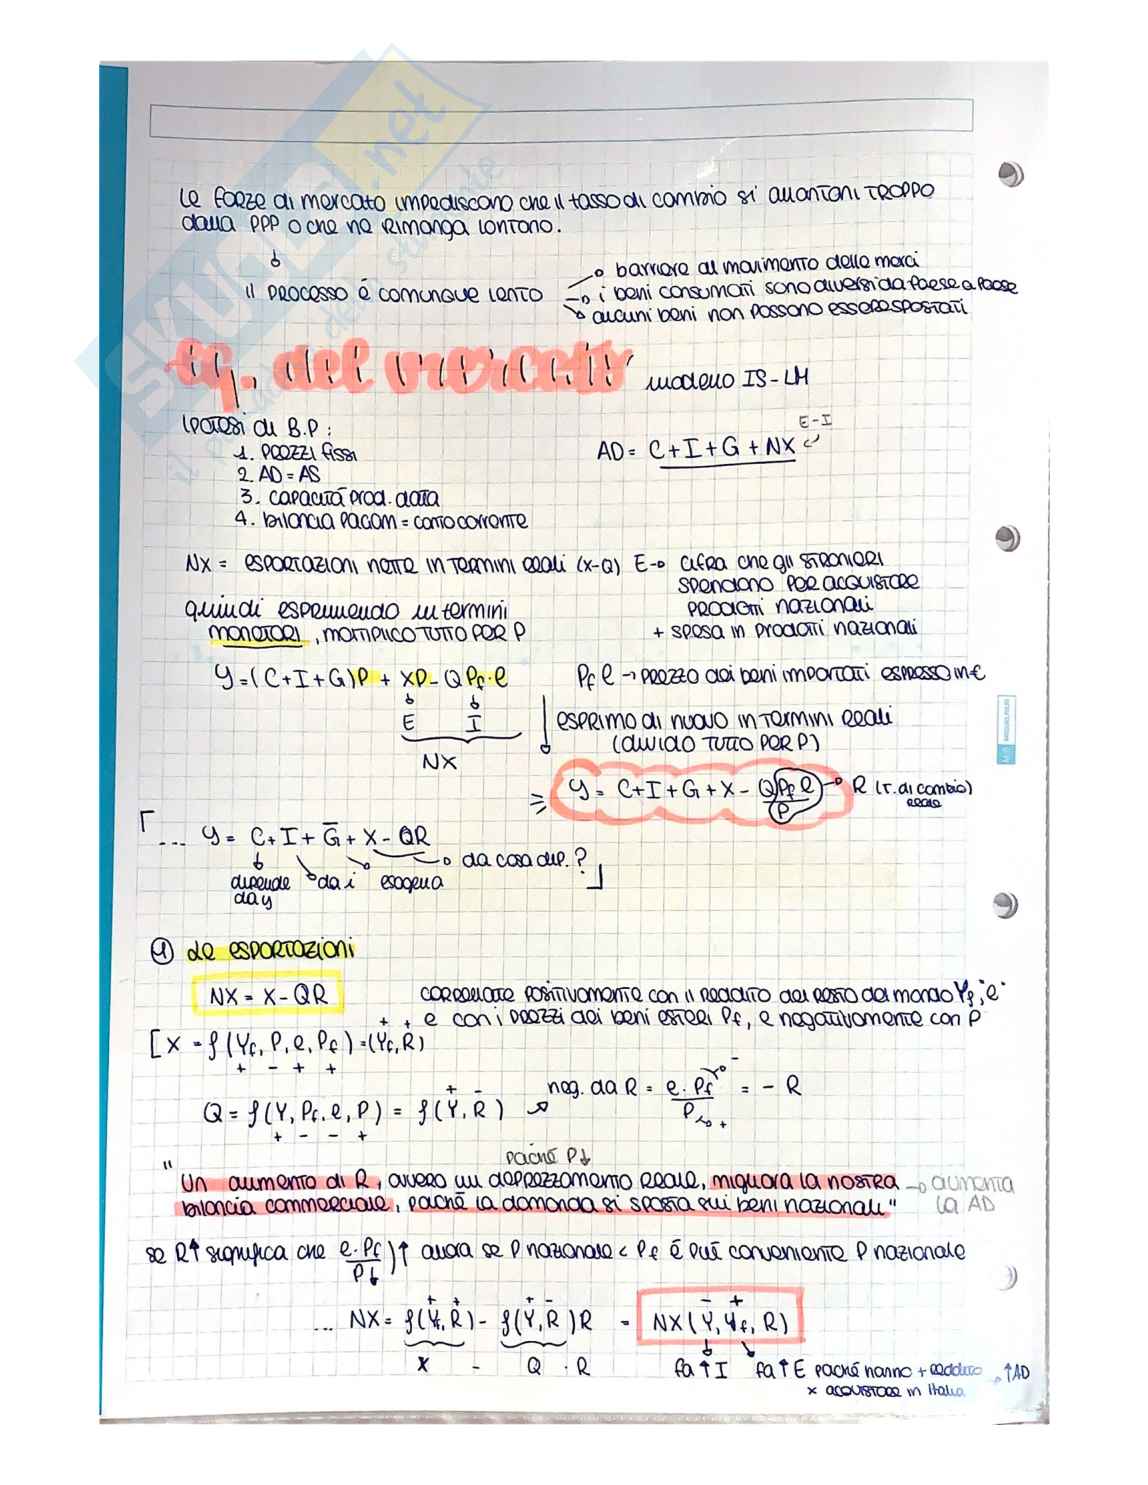 Le forze di mercato impediscono che il tasso di cambio si allontani TROPPO
dalla PPP o che ne rimanga lontano.
il processo é comunque lento
barriere al movimento delle merci
i beni consumati sono diversi da paese a paese
alcuni beni non possono essere spostati
eq. del mercato modello IS-LM
Ipotesi di B.P:
1. PREZZI fissi
2. AD = AS
3. capacità prod. data
4. bilancia pagam = conto corrente
E-I
AD = C+I+G+NX
NX = esportazioni nette in termini reali (X-Q) E→ cifra che gli stranieri
spendono per acquistare
prodotti nazionali
+ spesa in prodotti nazionali
quindi esprimendo in termini
monetari, moltiplico tutto per P
Y=(C+I+G)P + XP - Q Pf·e
E I
NX
Pf e → prezzo dei beni importati espresso in €
esprimo di nuovo in termini reali
(divido tutto per P)
= Y = C+I+G+X - Q Pf e / P → R (T. di cambio reale)
... Y = C+I+G̅+X-QR
dipende da y
da i
esogena
da cosa dip.?
1 Le esportazioni
NX = X-QR
correlate positivamente con il reddito del resto del mondo Yf, "e"
e con i prezzi dei beni esteri Pf, e negativamente con P
+ +
[X = f(Yf, P, e, Pf) = (Yf, R)
+ - + +
+ -
Q = f(Y, Pf, e, P) = f(Y, R) → neg. da R = e·Pf / P = - R
+ - - +
poiché P↓
"Un aumento di R, ovvero un deprezzamento reale, migliora la nostra → aumenta
bilancia commerciale, poiché la domanda si sposta sui beni nazionali" la AD
se R↑ significa che e·Pf / P↓ )↑ allora se P nazionale < Pf é più conveniente P nazionale
+ + + - - +
... NX = f(Yf, R) - f(Y, R)R = NX(Y, Yf, R)
X - Q · R
fa↑I fa↑E poiché hanno + reddito ↑AD
x acquistare in Italia
SKUOLA.net